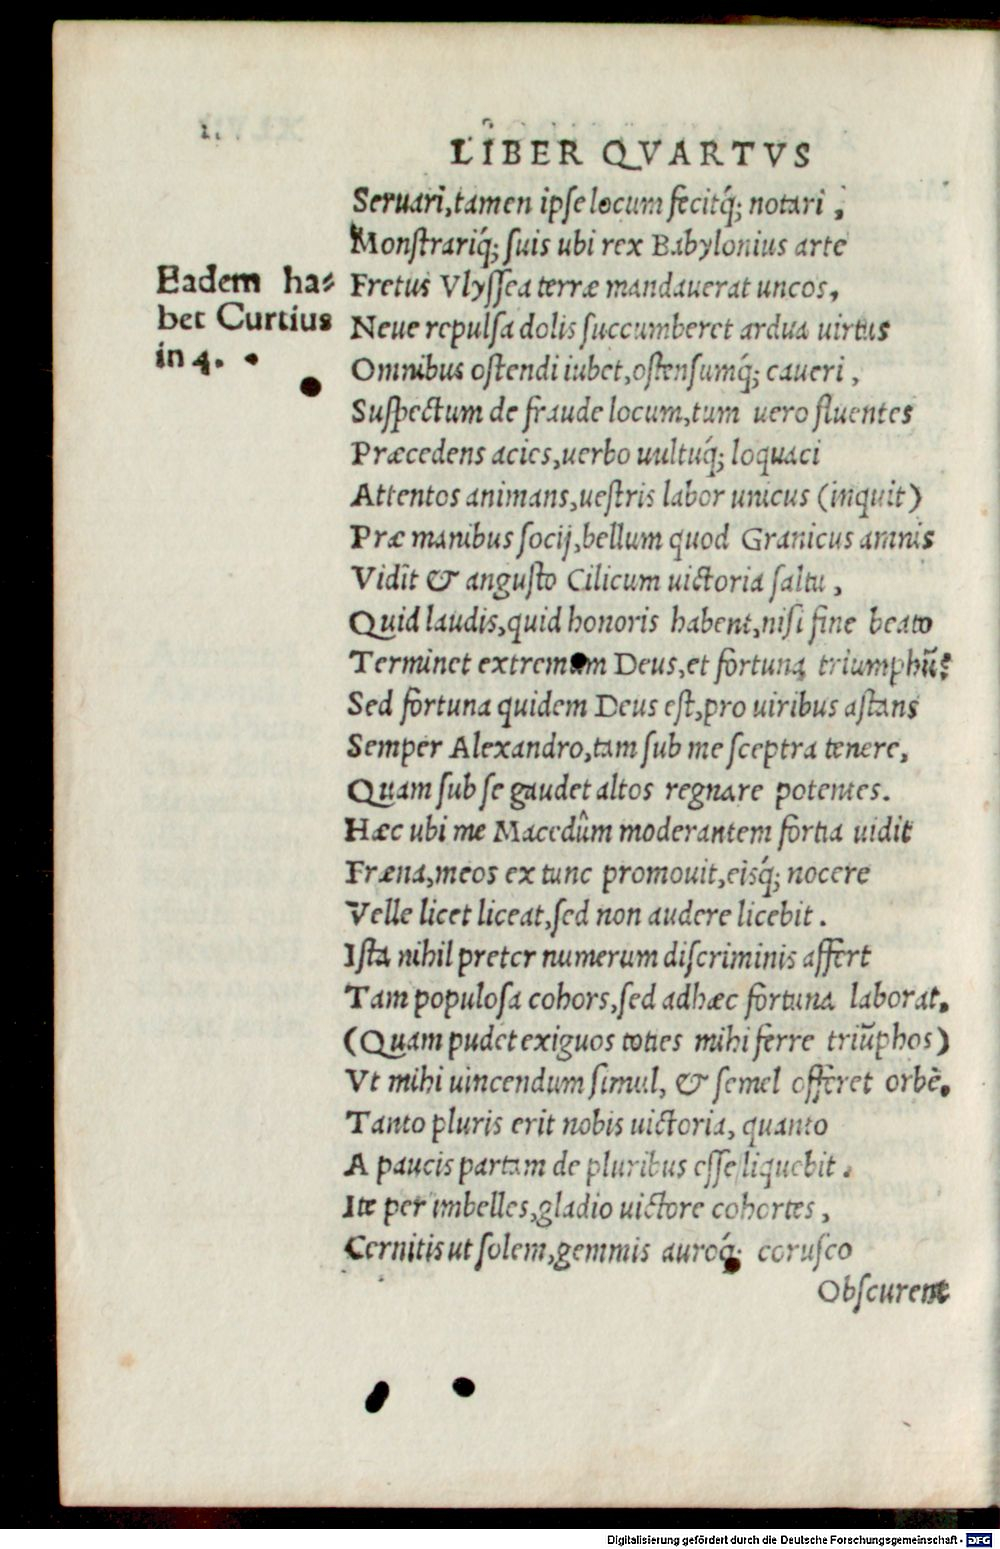 LIBER QVARTVS
Seruari,tamen ipse locum fecitq́; notari ;
Monstrariq́; suis ubi rex Babylonius arte
Eadem ha=
bet Curtius
in 4.
Fretus Vlyssea terræ mandauerat uncos,
Neue repulsa dolis succumberet ardua uirtus
Omnibus ostendi iubet,ostensumq́; caueri,
Suspectum de fraude locum,tum uero fluentes
Præcedens acies,uerbo uultuq́; loquaci
Attentos animans,uestris labor unicus (inquit)
Præ manibus socij,bellum quod Granicus amnis
Vidit & angusto Cilicum uictoria saltu,
Quid laudis,quid honoris habent,nisi fine beato
Terminet extremum Deus,et fortuna triumphũ?
Sed fortuna quidem Deus est,pro uiribus astans
Semper Alexandro,tam sub me sceptra tenere,
Quam sub se gaudet altos regnare potentes.
Hæc ubi me Macedûm moderantem fortia uidit
Fræna,meos ex tunc promouit,eisq́; nocere
Velle licet liceat,sed non audere licebit.
Ista nihil preter numerum discriminis affert
Tam populosa cohors,sed adhæc fortuna laborat,
(Quam pudet exiguos toties mihi ferre triũphos)
Vt mihi uincendum simul, & semel offeret orbẽ,
Tanto pluris erit nobis uictoria, quanto
A paucis partam de pluribus esse liquebit.
Ite per imbelles,gladio uictore cohortes,
Cernitis ut solem,gemmis auroq́; corusco
Obscurent
Digitalisierung gefördert durch die Deutsche Forschungsgemeinschaft - DFG